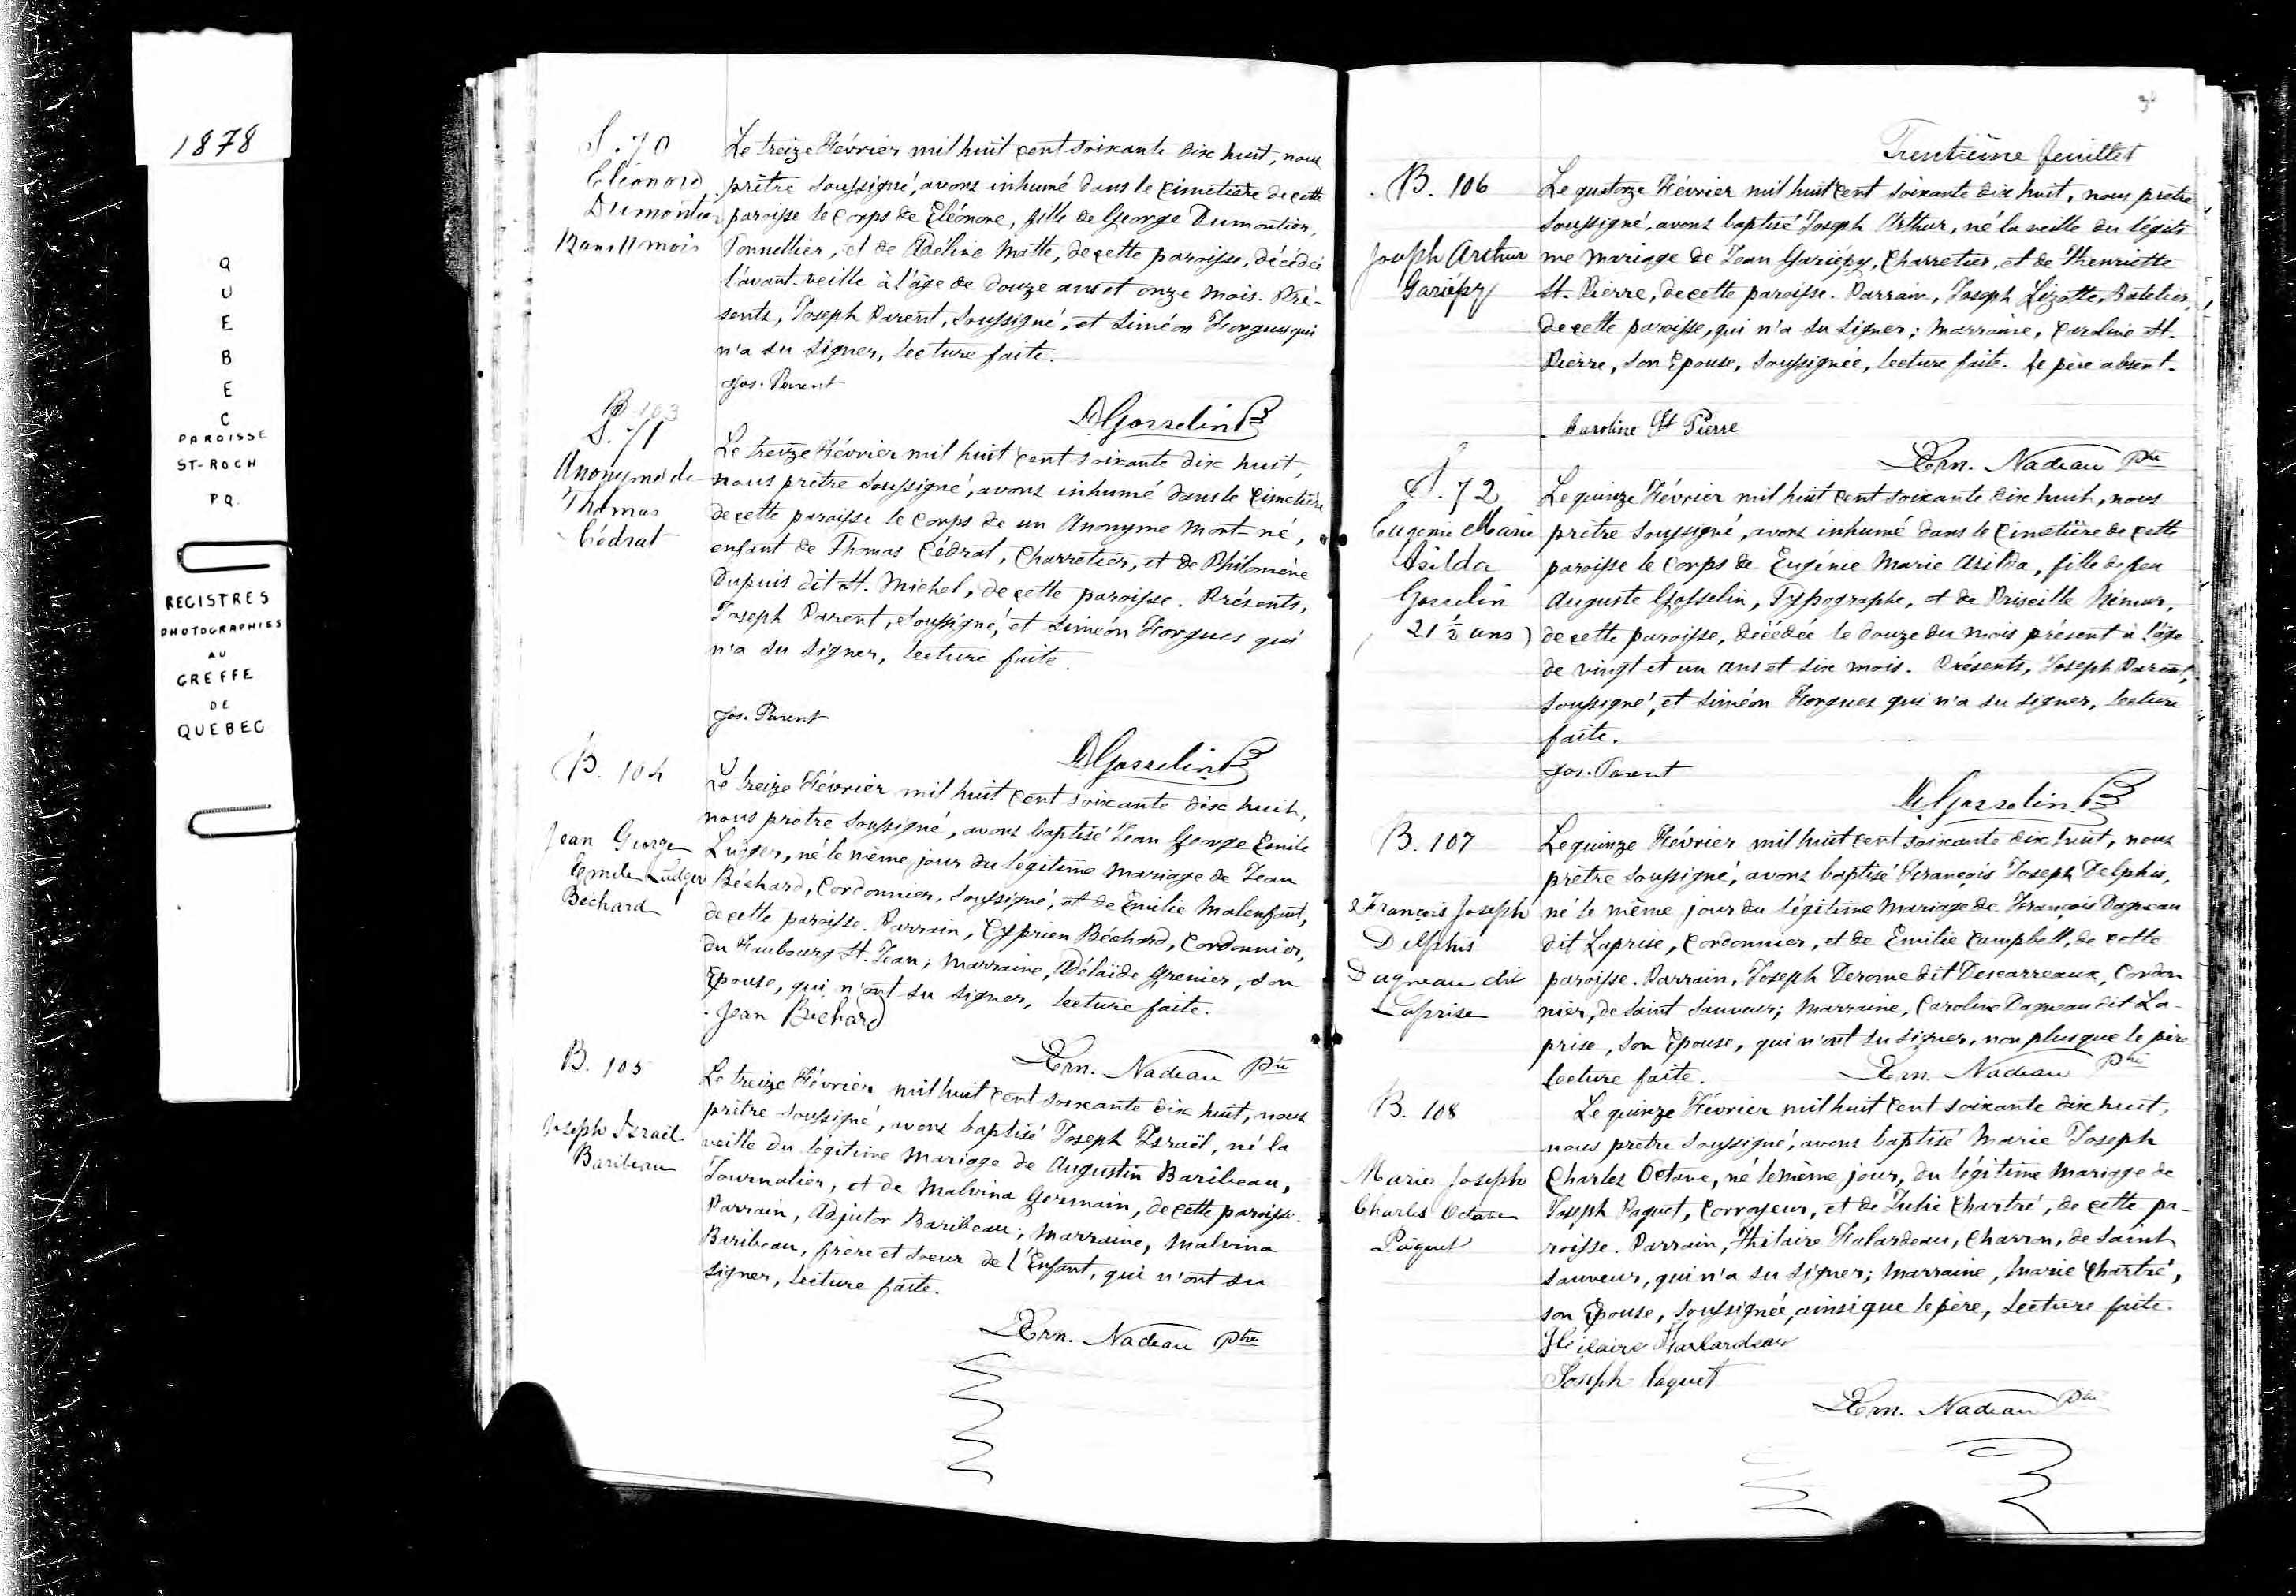 1878
Q
U
E
B
E
C
PAROISSE
ST-ROCH
P.Q.
REGISTRES
PHOTOGRAPHIES
AU
GREFFE
DE
QUEBEC
S. 70
Eléonore
Dumontier
12 ans 11 mois
Le treize Février mil huit cent soixante dix huit, nous
prêtre soussigné, avons inhumé dans le cimetière de cette
paroisse le corps de Eléonore, fille de George Dumontier,
Tonnellier, et de Adéline Matte, de cette paroisse, décédée
l'avant-veille à l'âge de douze ans et onze mois. Pré-
sents, Joseph Parent, soussigné, et Siméon Forgues qui
n'a su signer, lecture faite.
Jos. Parent
DGosselin Ptre
B 103
S. 71
Anonyme de
Thomas
Cédrat
Le treize Février mil huit cent soixante dix huit,
nous prêtre soussigné, avons inhumé dans le cimetière
de cette paroisse le corps de un Anonyme mort-né,
enfant de Thomas Cédrat, Charretier, et de Philomène
Dupuis dit St. Michel, de cette paroisse. Présents,
Joseph Parent, soussigné, et Siméon Forgues qui
n'a su signer, lecture faite.
Jos. Parent
DGosselin Ptre
B. 104
Jean George
Emile Ludger
Béchard
Le treize Février mil huit cent soixante dix huit,
nous prêtre soussigné, avons baptisé Jean George Emile
Ludger, né le même jour du légitime mariage de Jean
Béchard, Cordonnier, soussigné, et de Emilie Malenfant,
de cette paroisse. Parrain, Cyprien Béchard, Cordonnier,
du Faubourg St. Jean; Marraine, Adélaïde Grenier, son
Epouse, qui n'ont su signer, lecture faite.
Jean Bechard
Ern. Nadeau Ptre
B. 105
Joseph Israël
Baribeau
Le treize Février mil huit cent soixante dix huit, nous
prêtre soussigné, avons baptisé Joseph Israël, né la
veille du légitime mariage de Augustin Baribeau,
Journalier, et de Malvina Germain, de cette paroisse.
Parrain, Adjutor Baribeau; Marraine, Malvina
Baribeau, frère et soeur de l'Enfant, qui n'ont su
signer, lecture faite.
Ern. Nadeau Ptre
30
Trentième feuillet
B. 106
Joseph Arthur
Gariépy
Le quatorze Février mil huit cent soixante dix huit, nous prêtre
soussigné, avons baptisé Joseph Arthur, né la veille du légiti-
me mariage de Jean Gariépy, Charretier, et de Henriette
St. Pierre, de cette paroisse. Parrain, Joseph Lizotte, Batelier,
de cette paroisse, qui n'a su signer; Marraine, Caroline St.
Pierre, son Epouse, soussignée, lecture faite. Le père absent.
Caroline St Pierre
Ern. Nadeau Ptre
S. 72
Eugenie Marie
Asilda
Gosselin
21 ½ ans)
Le quinze Février mil huit cent soixante dix huit, nous
prêtre soussigné, avons inhumé dans le cimetière de cette
paroisse le corps de Eugénie Marie Asilda, fille de feu
Auguste Gosselin, Typographe, et de Priscille
de cette paroisse, décédée le douze du mois présent à l'âge
de vingt et un ans et six mois. Présents, Joseph Parent,
soussigné, et Siméon Forgues qui n'a su signer, lecture
faite.
Jos. Parent
DGosselin Ptre
B. 107
François Joseph
Delphis
Dagneau dit
Laprise
Le quinze Février mil huit cent soixante dix huit, nous
prêtre soussigné, avons baptisé François Joseph Delphis,
né le même jour du légitime mariage de François Dagneau
dit Laprise, Cordonnier, et de Emilie Campbell, de cette
paroisse. Parrain, Joseph Derome dit Descarreaux, Cordon
nier, de Saint Sauveur; Marraine, Caroline Dagneau dit La-
prise, son Epouse, qui n'ont su signer, non plus que le père
lecture faite.
Ern. Nadeau Ptre
B. 108
Marie Joseph
Charles Octave
Paquet
Le quinze Février mil huit cent soixante dix huit,
nous prêtre soussigné, avons baptisé Marie Joseph
Charles Octave, né le même jour, du légitime mariage de
Joseph Paquet, Corroyeur, et de Julie Chartré, de cette pa-
roisse. Parrain, Hilaire Falardeau, Charron, de Saint
Sauveur, qui n'a su signer; Marraine, Marie Chartré,
son Epouse, soussignée, ainsi que le père, lecture faite.
Hilaire Falardeau
Joseph Paquet
Ern. Nadeau Ptre